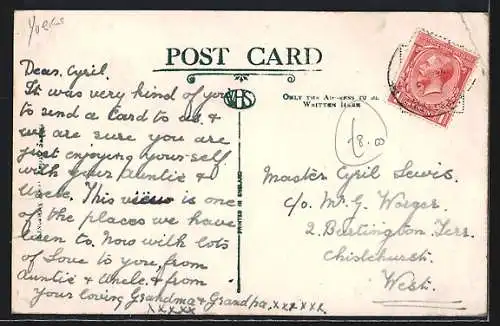 Yorks
POST CARD
Dear Cyril.
It was very kind of you
to send a card to us &
we are sure you are
just enjoying yourself
with your Auntie &
Uncle. This view is one
of the places we have
been to. Now with lots
of love to you, from
Auntie & Uncle & from
Your loving Grandma & Grandpa. xxxxxx
xxxxx
WHS
ONLY THE ADDRESS TO BE
WRITTEN HERE
PRINTED IN ENGLAND
£8.00
Master Cyril Lewis.
c/o Mr G. Worger.
2. Bertington Terr.
Chislehurst.
West.